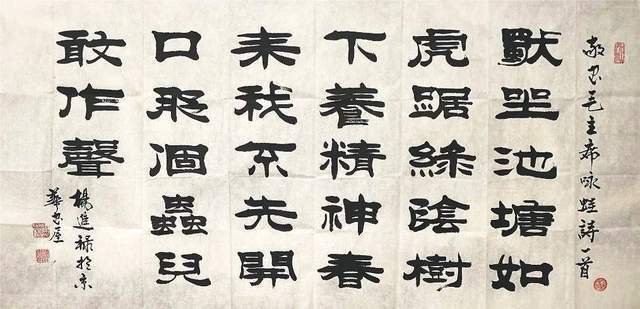 敬书毛主席咏蛙詩一首
獸坐池塘如
虎踞綠陰樹
下養精神春
来我不先開
口那個蟲兒
敢作聲
楊進禄於京
華书屋